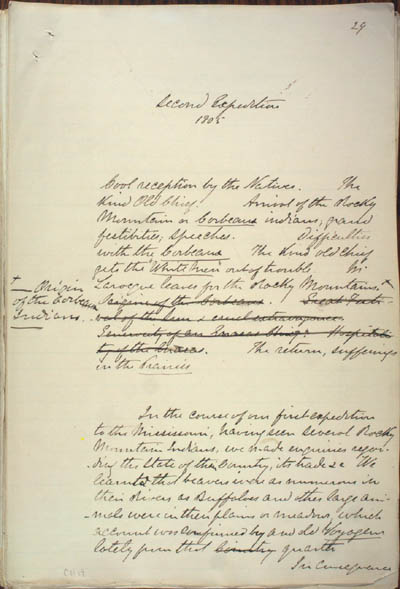 29
Second Expedition
1805
Cool reception by the Natives. The
Kind Old Chief. Arrival of the Rocky
Mountain or Corbeaux indians; grand
festivities; speeches. Difficulties
with the Corbeaux The Kind old Chief
gets the White Men out of trouble. Mr
Larocque leaves for the Rocky Mountains. +
+ — Origin
of the Corbeau
Indians.
Origin of the Corbeaux. Great Festi-
val of the Sun & cruel extravagance.
Generosity of an Chief: Hospitali-
ty of the . The return, sufferings
in the Prairies
In the course of our first expedition
to the Mississouri, having seen several Rocky
Mountain Indians, we made enquiries regar-
ding the State of their Country, its trade &c We
learnt that beavers were as numerous in
their Rivers as Buffaloes and other large ani-
-mals were in their plains or meadows, which
account was confirmed by an old Voyageur
lately from that Country quarter
In consequence